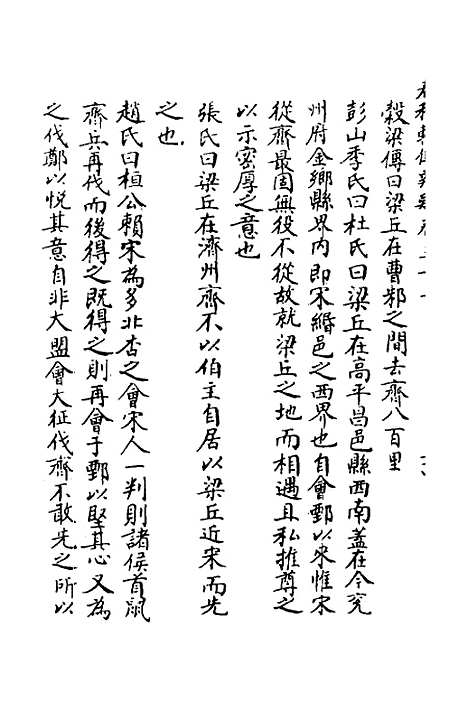 穀梁傳曰梁丘在曹邾之間去齊八百里
彭山季氏曰杜氏曰梁丘在高平昌邑縣西南蓋在今兖
州府金鄉縣界內即宋緡邑之西界也自會鄄以來惟宋
從齊最固無役不從故就梁丘之地而相遇且私推尊之
以示密厚之意也
張氏曰梁丘在濟州齊不以伯主自居以梁丘近宋而先
之也
趙氏曰桓公賴宋為多北杏之會宋人一判則諸侯首鼠
齊兵再伐而後得之既得之則再會于鄄以堅其心又為
之伐鄭以悦其意自非大盟會大征伐齊不敢先之所以